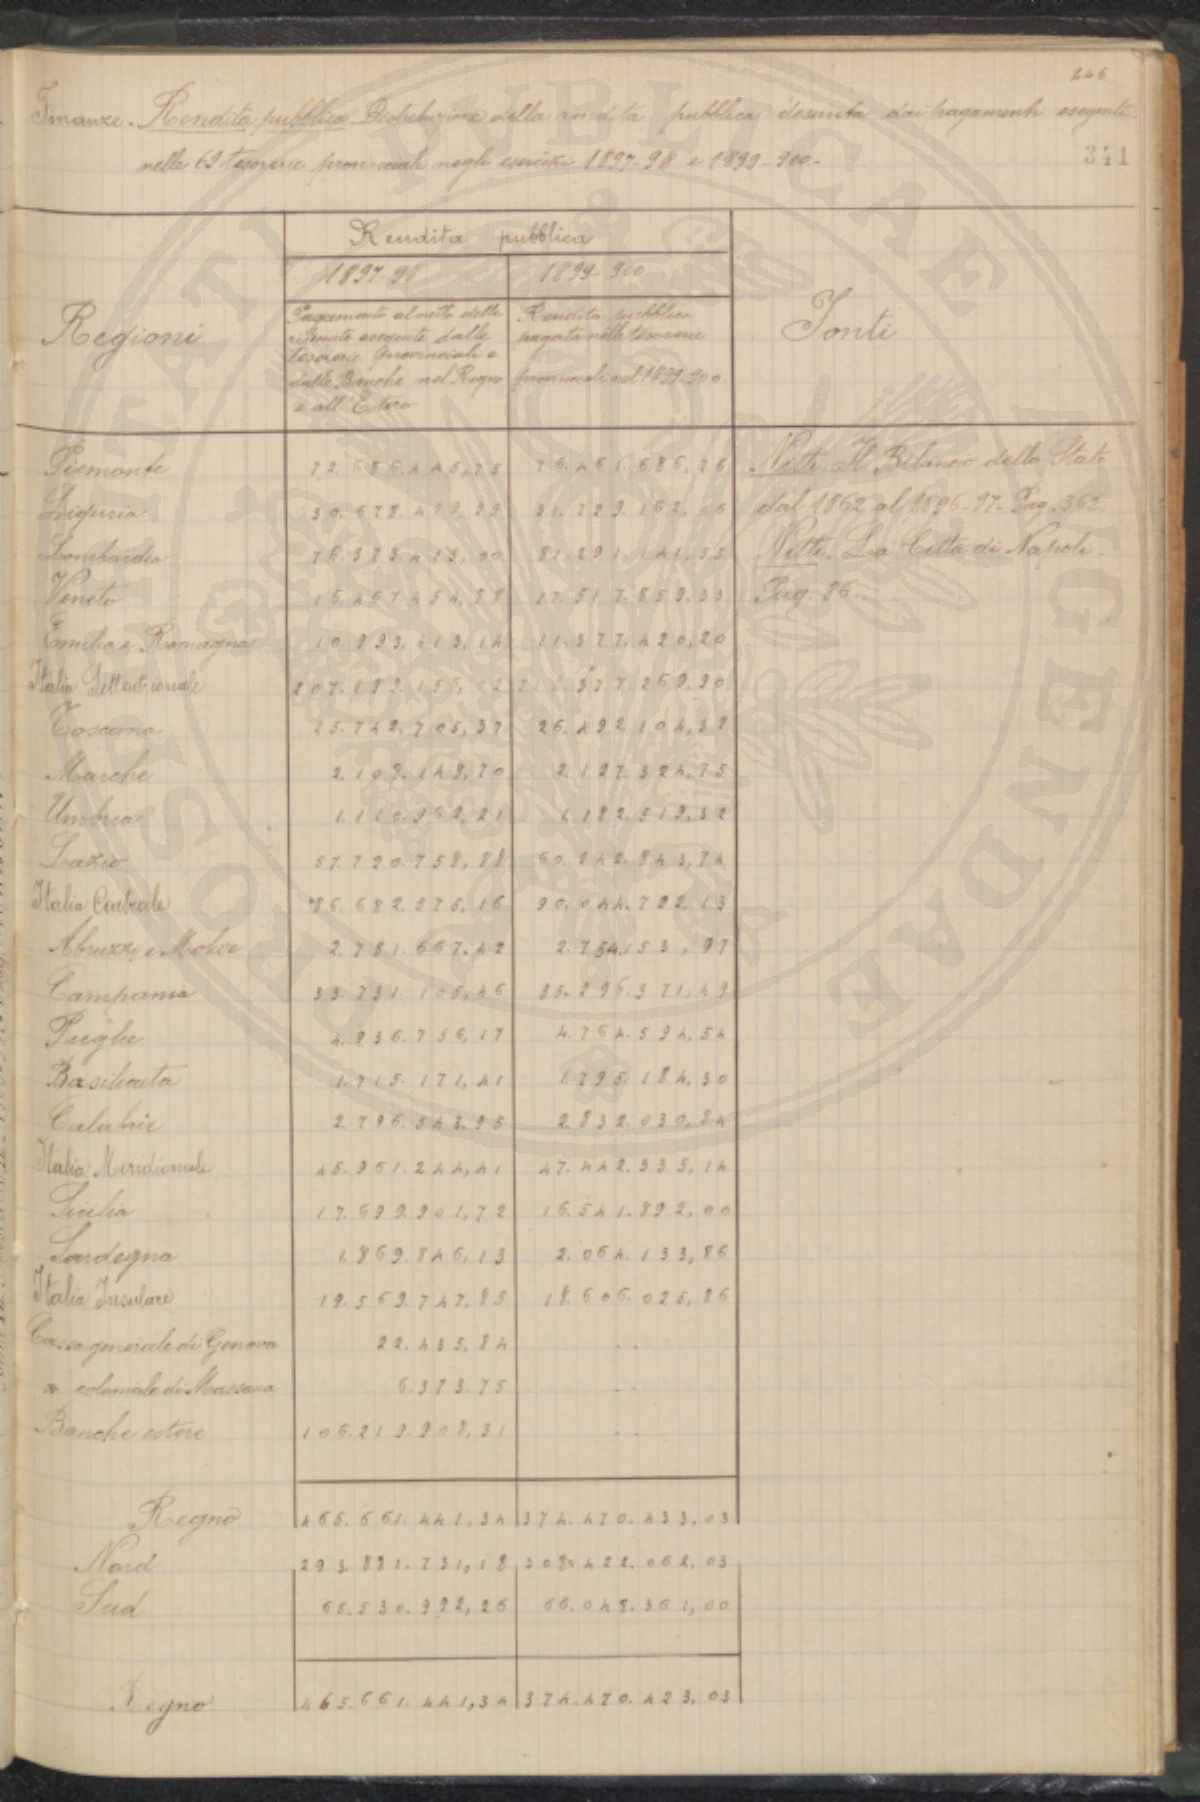 246
Finanze. Rendita pubblica Distribuzione della rendita pubblica desunta dai pagamenti eseguiti
nelle 69 tesorerie provinciali negli esercizi 1897-98 e 1899-900.-
341
Regioni
Rendita pubblica
Fonti
1897-98 1899-900
Pagamento al netto delle ritenute eseguite dalle tesorerie provinciali e dalle Banche nel Regno e all'Estero
Rendita pubblica pagata nelle tesorerie provinciali nel 1899-900.
Piemonte 72.686.446,75 76.461.686,76 Nitti. Il Bilancio dello Stato
Liguria 30.678.429,23 31.729.162, dal 1862 al 1896-97- Pag. 362.
Lombardia 76.383.413,00 81.291.141,55 Nitti. La Città di Napoli.
Veneto 16.467.454,88 17.517.859,33 Pag. 86.
Emilia e Romagna 10.993.413,14 11.377.420,20
Italia Settentrionale 207.189.156,02 377.269,90
Toscana 25.742.705,37 26.492.104,32
Marche 2.108.148,70 2.127.324,75
Umbria 1.110.962,21 1.182.519,32
Lazio 57.720.758,88 60.242.843,74
Italia Centrale 86.682.575,16 90.044.792,13
Abruzzi e Molise 2.781.667,42 2.754.153,97
Campania 33.731.105,46 35.296.371,49
Puglie 4.936.756,17 4.764.594,54
Basilicata 1.715.171,41 1.795.184,30
Calabrie 2.796.543,95 2.832.030,84
Italia Meridionale 45.961.244,41 47.442.335,14
Sicilia 17.699.901,72 16.541.892,00
Sardegna 1.869.846,13 2.064.133,86
Italia Insulare 19.569.747,85 18.606.025,86
Cassa generale di Genova 22.435,84 ..
" coloniale di Massaua 6.373.75 ..
Banche estere 106.219.908,31 ..
Regno 465.661.441,34 374.470.433,03
Nord 293.881.731,18 308.422.062.03
Sud 65.530.992,26 66.048.361,00
Regno 465.661.441,34 374.470.423,03